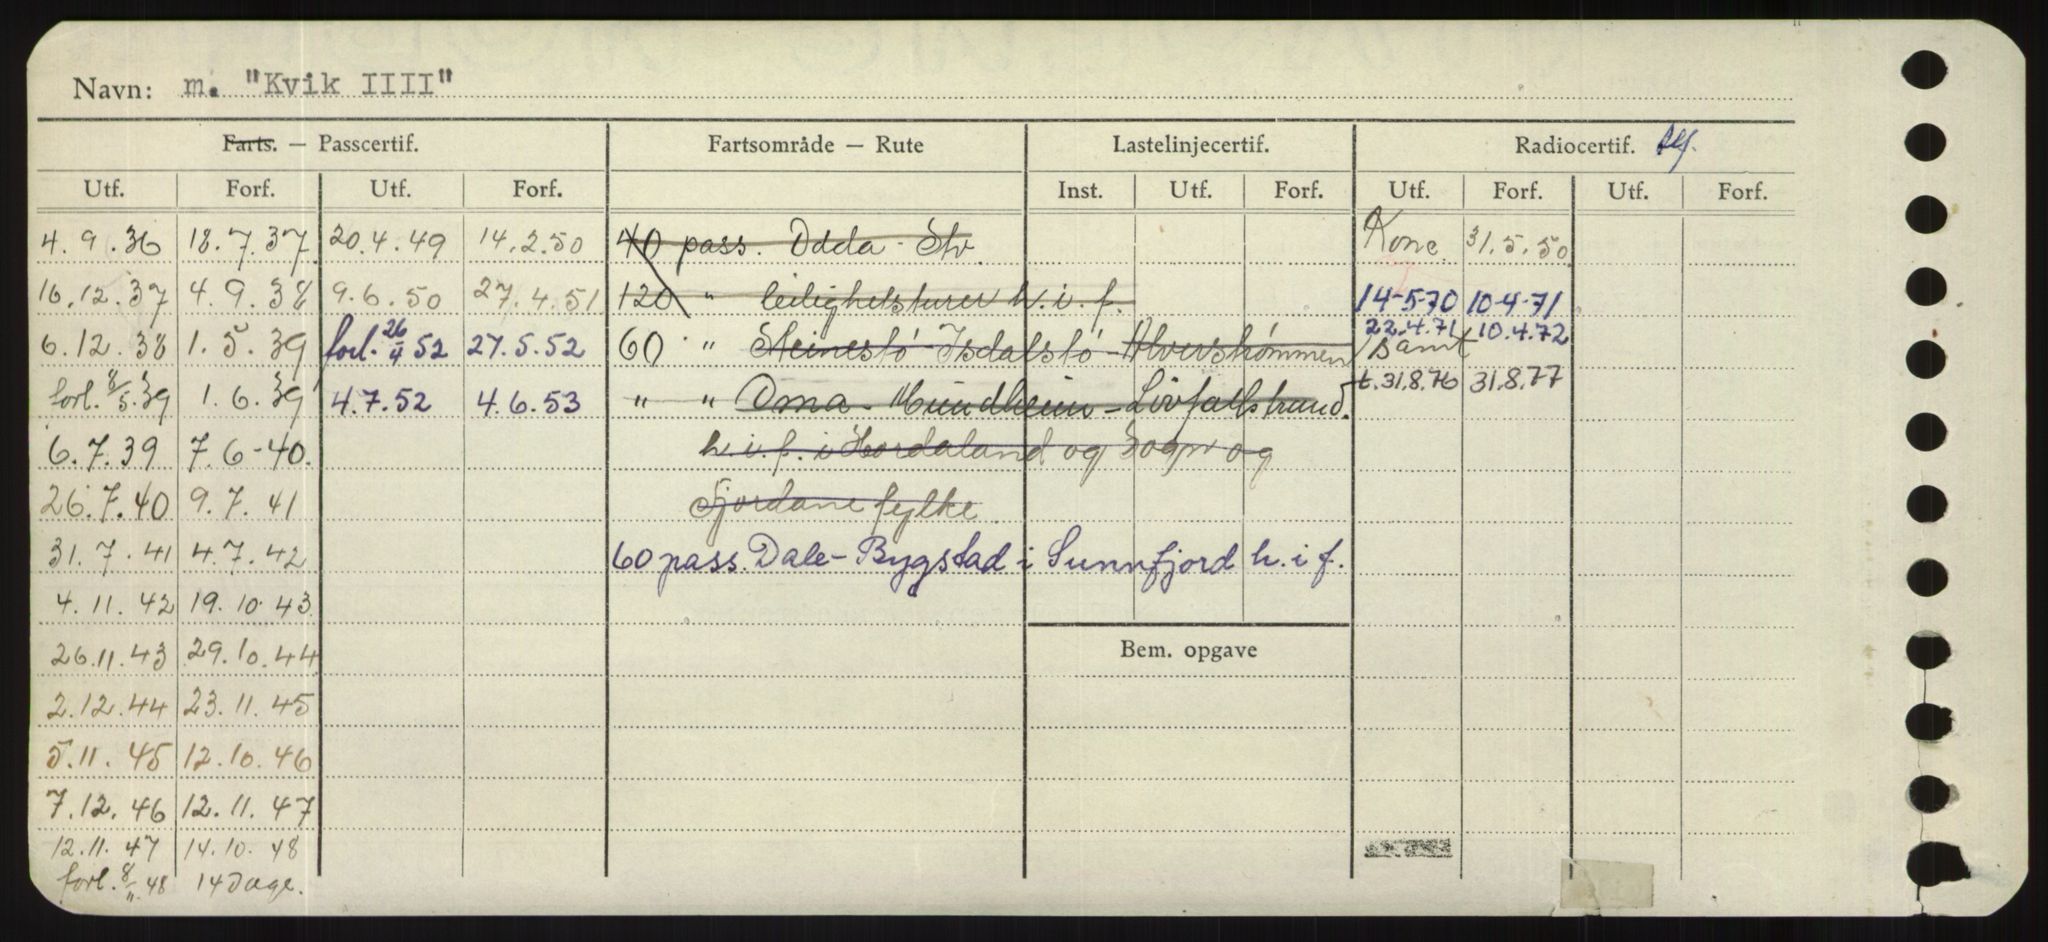 Navn: m. "Kvik IIII"
Farts. — Passcertif. Fartsområde — Rute Lastelinjecertif. Radiocertif.
Utf. Forf. Utf. Forf. Inst. Utf. Forf. Utf. Forf. Utf. Forf.
4.9.36 18.7.37. 20.4.49 14.2.50 40 pass. Odda - Stv. Konc. 31.5.50
16.12.37 4.9.38 9.6.50 27.4.51 120 " leilighetsturer h.i.f. 14-5-70 10-4-71
22.4.71 10.4.72
6.12.38 1.5.39 forl. 26/4 52 27.5.52 60 " Steinestö - Isdalstö - Alverströmmen
forl. 8/5.39 1.6.39 4.7.52 4.6.53 " " Oma - Mundheim - Löfallstrand. t.31.8.76 31.8.77
6.7.39 7.6-40. h.i.f. i Hordaland og Sogn og
26.7.40 9.7.41 Fjordane fylke.
31.7.41 4.7.42 60 pass. Dale - Bygstad i Sunnfjord h.i.f.
4.11.42 19.10.43
26.11.43 29.10.44 Bem. opgave
2.12.44 23.11.45
5.11.45 12.10.46
7.12.46 12.11.47
12.11.47 14.10.48
forl. 8/11.48 14 Dage.